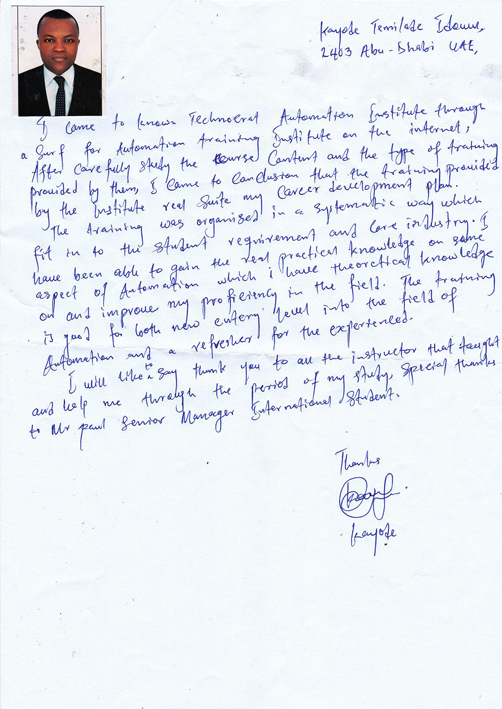 Kayode Temilade Idowu,
2403 Abu-Dhabi UAE,
I came to known Technocrat Automation Institute through
a surf for Automation training Institute on the internet,
After carefully study the course Content and the type of training
provided by them, I came to Conclusion that the training provided
by the Institute real Suite my Career development plan.
The training was organised in a systematic way which
fit in to the student requirement and Core industry. I
have been able to gain the real practical knowledge on some
aspect of Automation which i have theoretical knowledge
on and improve my proficiency in the field. The training
is good for both new entery level into the field of
Automation and a refresher for the experienced.
I will like to say thank you to all the instructor that taught
and help me through the period of my study, Special thanks
to Mr paul Senior Manager International Student.
Thanks
Kayode